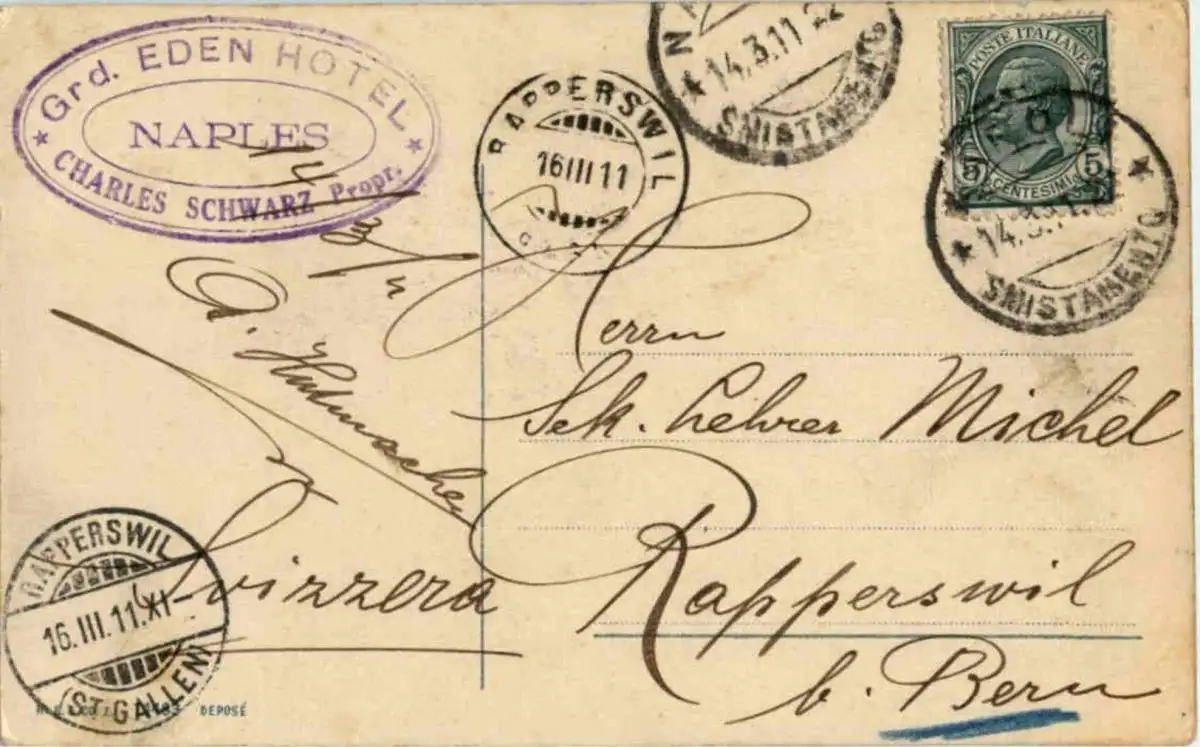 Grd. EDEN HOTEL
NAPLES
CHARLES SCHWARZ Propr.
RAPPERSWIL
16 III 11
14.3.11 22
SMISTAMENTO
POSTE ITALIANE
5 CENTESIMI 5
14.3.
SMISTAMENTO
14/3/11
Herrn
Sek. Lehrer Michel
Rapperswil
b. Bern
Svizzera
RAPPERSWIL
16.III.11.XI-
(ST. GALLEN)
DEPOSÉ